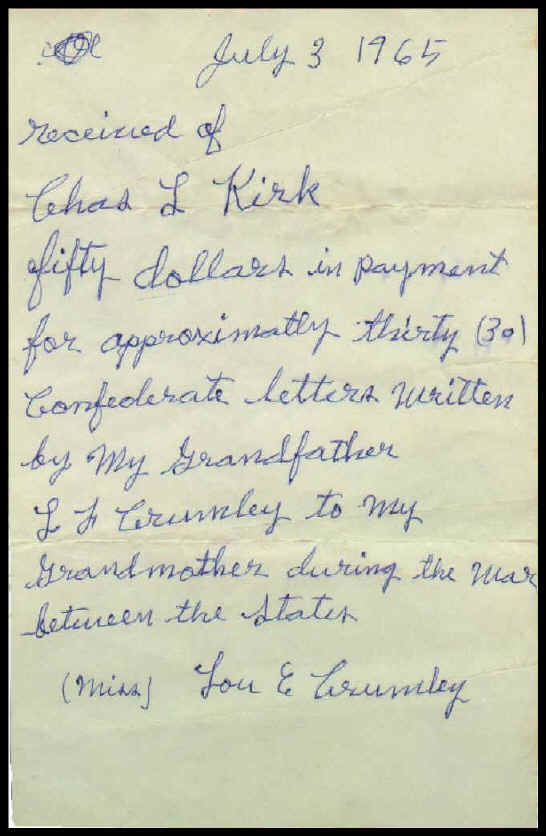 July 3 1965
received of
Chas L Kirk
fifty dollars in payment
for approximatly thirty (30)
Confederate letters written
by My Grandfather
L F Crumley to My
Grandmother during the War
between the States
(Miss) Lou E Crumley